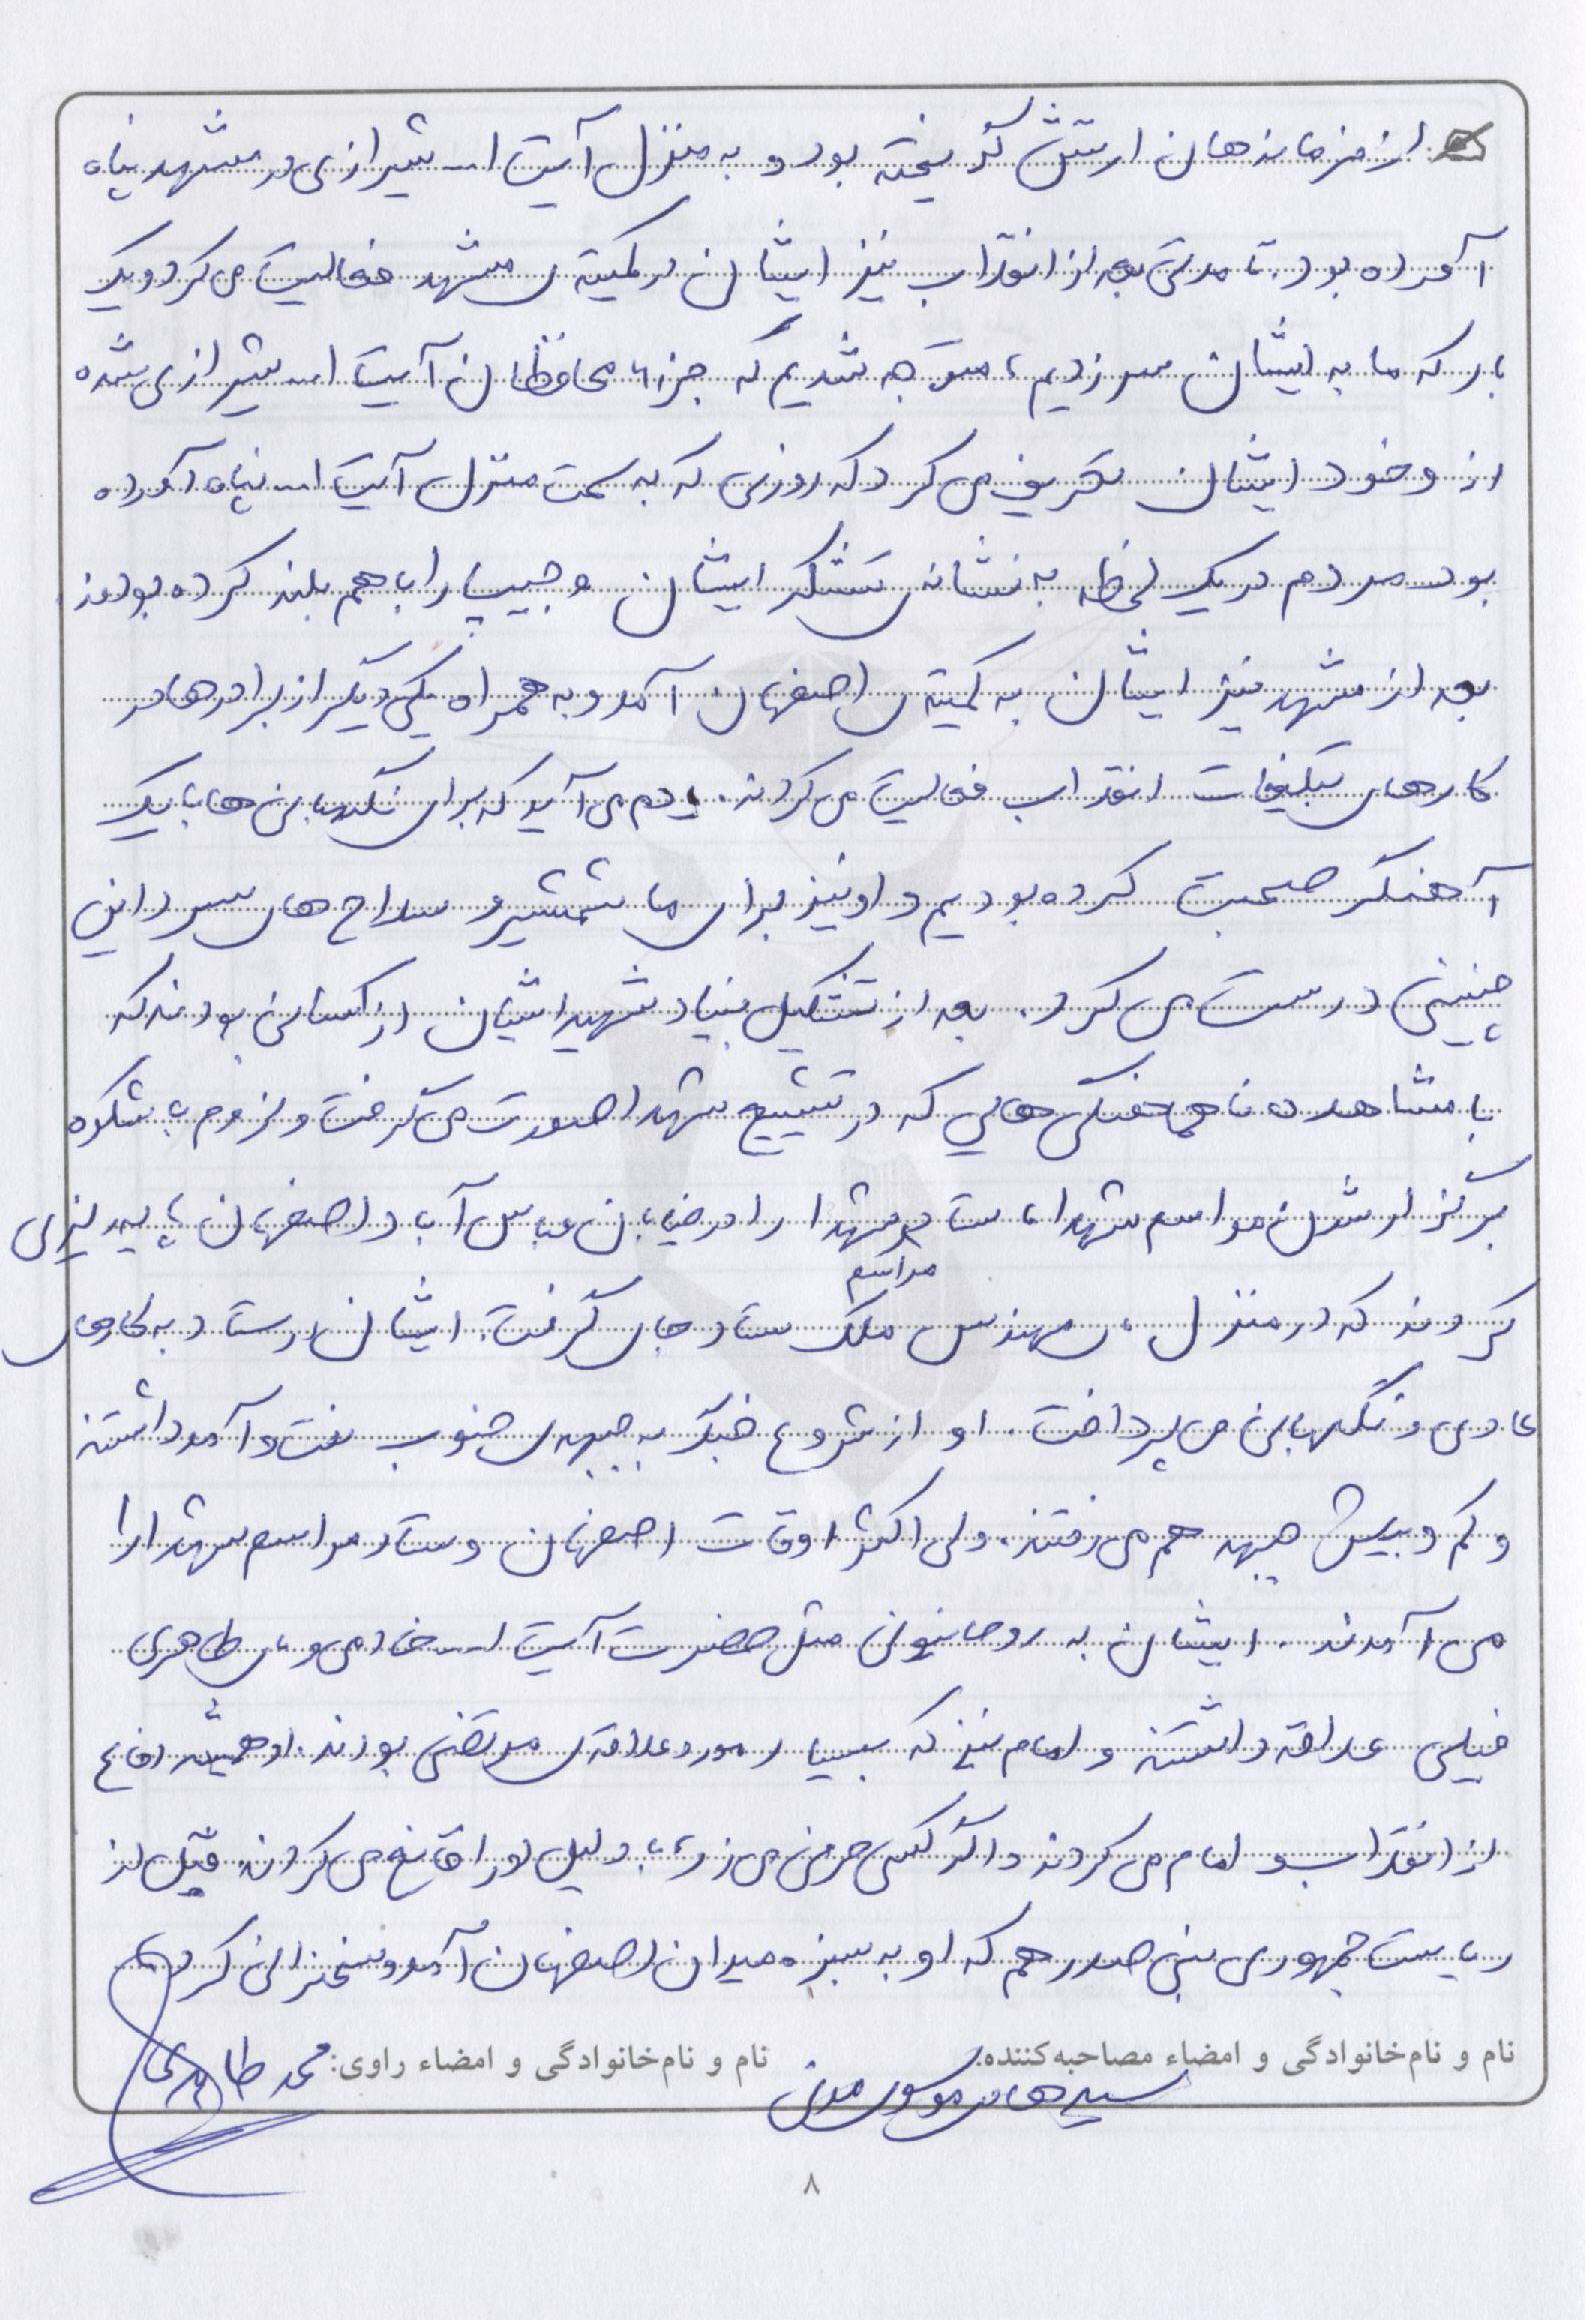 از فرماندهان ارتش گریخته بود و به منزل آیت ا... شیرازی در مشهد پناه
آورده بود. تا مدتی بعد از انقلاب نیز ایشان در کمیته ی مشهد فعالیت می کرد و یک
بار که ما به ایشان سر زدیم، متوجه شدیم که جزء محافظان آیت ا... شیرازی شده
از وخود ایشان تعریف می کرد که روزی که به سمت منزل آیت ا... پناه آورده
بود مردم در یک لحظه به نشانه ی تشکر ایشان و جیپ را با هم بلند کرده بودند
بعد از مشهد نیز ایشان به کمیته ی اصفهان آمد و به همراه یکی دیگر از برادرها در
کارهای تبلیغات انقلاب فعالیت می کردند. یادم می آید که برای نگهبانی ها با یک
آهنگر صحبت کرده بودیم و او نیز برای ما شمشیر و سلاح های سرد این
چنینی درست می کرد. بعد از تشکیل بنیاد شهید ایشان از کسانی بودند که
با مشاهده ناهماهنگی هایی که در تشییع شهدا صورت می گرفت و لزوم با شکوه
برگزار شدن مراسم شهدا، ستاد شهدا را در خیابان عباس آباد اصفهان پایه ریزی
مراسم
کردند که در منزل مهندس ملک ستاد جای گرفت. ایشان در ستاد به کارهای
عادی و نگهبانی می پرداخت. او از شروع جنگ به جبهه ی جنوب رفت و آمد داشتند
و کم و بیش جبهه هم می رفتند. ولی اکثر اوقات اصفهان و ستاد مراسم شهدا را
می آمدند. ایشان به روحانیونی مثل حضرت آیت ا... خادمی و طاهری
خیلی علاقه داشتند و امام نیز که بسیار مورد علاقه ی مرتضی بودند. او همیشه دفاع
از انقلاب و امام می کردند و اگر کسی حرفی می زد، با دلیل او را قانع می کردند. قبل از
ریاست جمهوری بنی صدر هم که او به سبزه میدان اصفهان آمد و سخنرانی کرد
نام و نام‌خانوادگی و امضاء مصاحبه‌کننده: نام و نام‌خانوادگی و امضاء راوی: محمد
۸